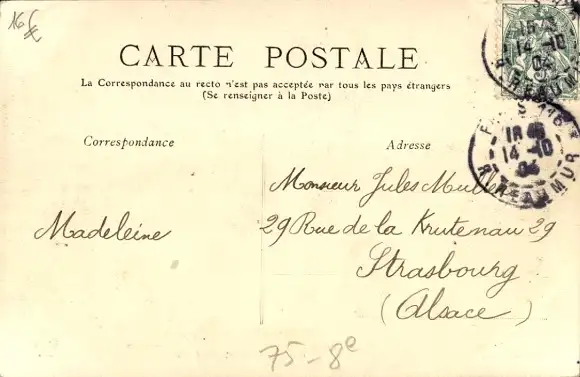 16€
CARTE POSTALE
La Correspondance au recto n'est pas acceptée par tous les pays étrangers
(Se renseigner à la Poste)
Correspondance
Adresse
Madeleine
Monsieur Jules Muller
29 Rue de la Krutenau 29
Strasbourg
(Alsace)
14-10
04
R. REAUMUR
18
14-10
04
R. REAUMUR
75-8e